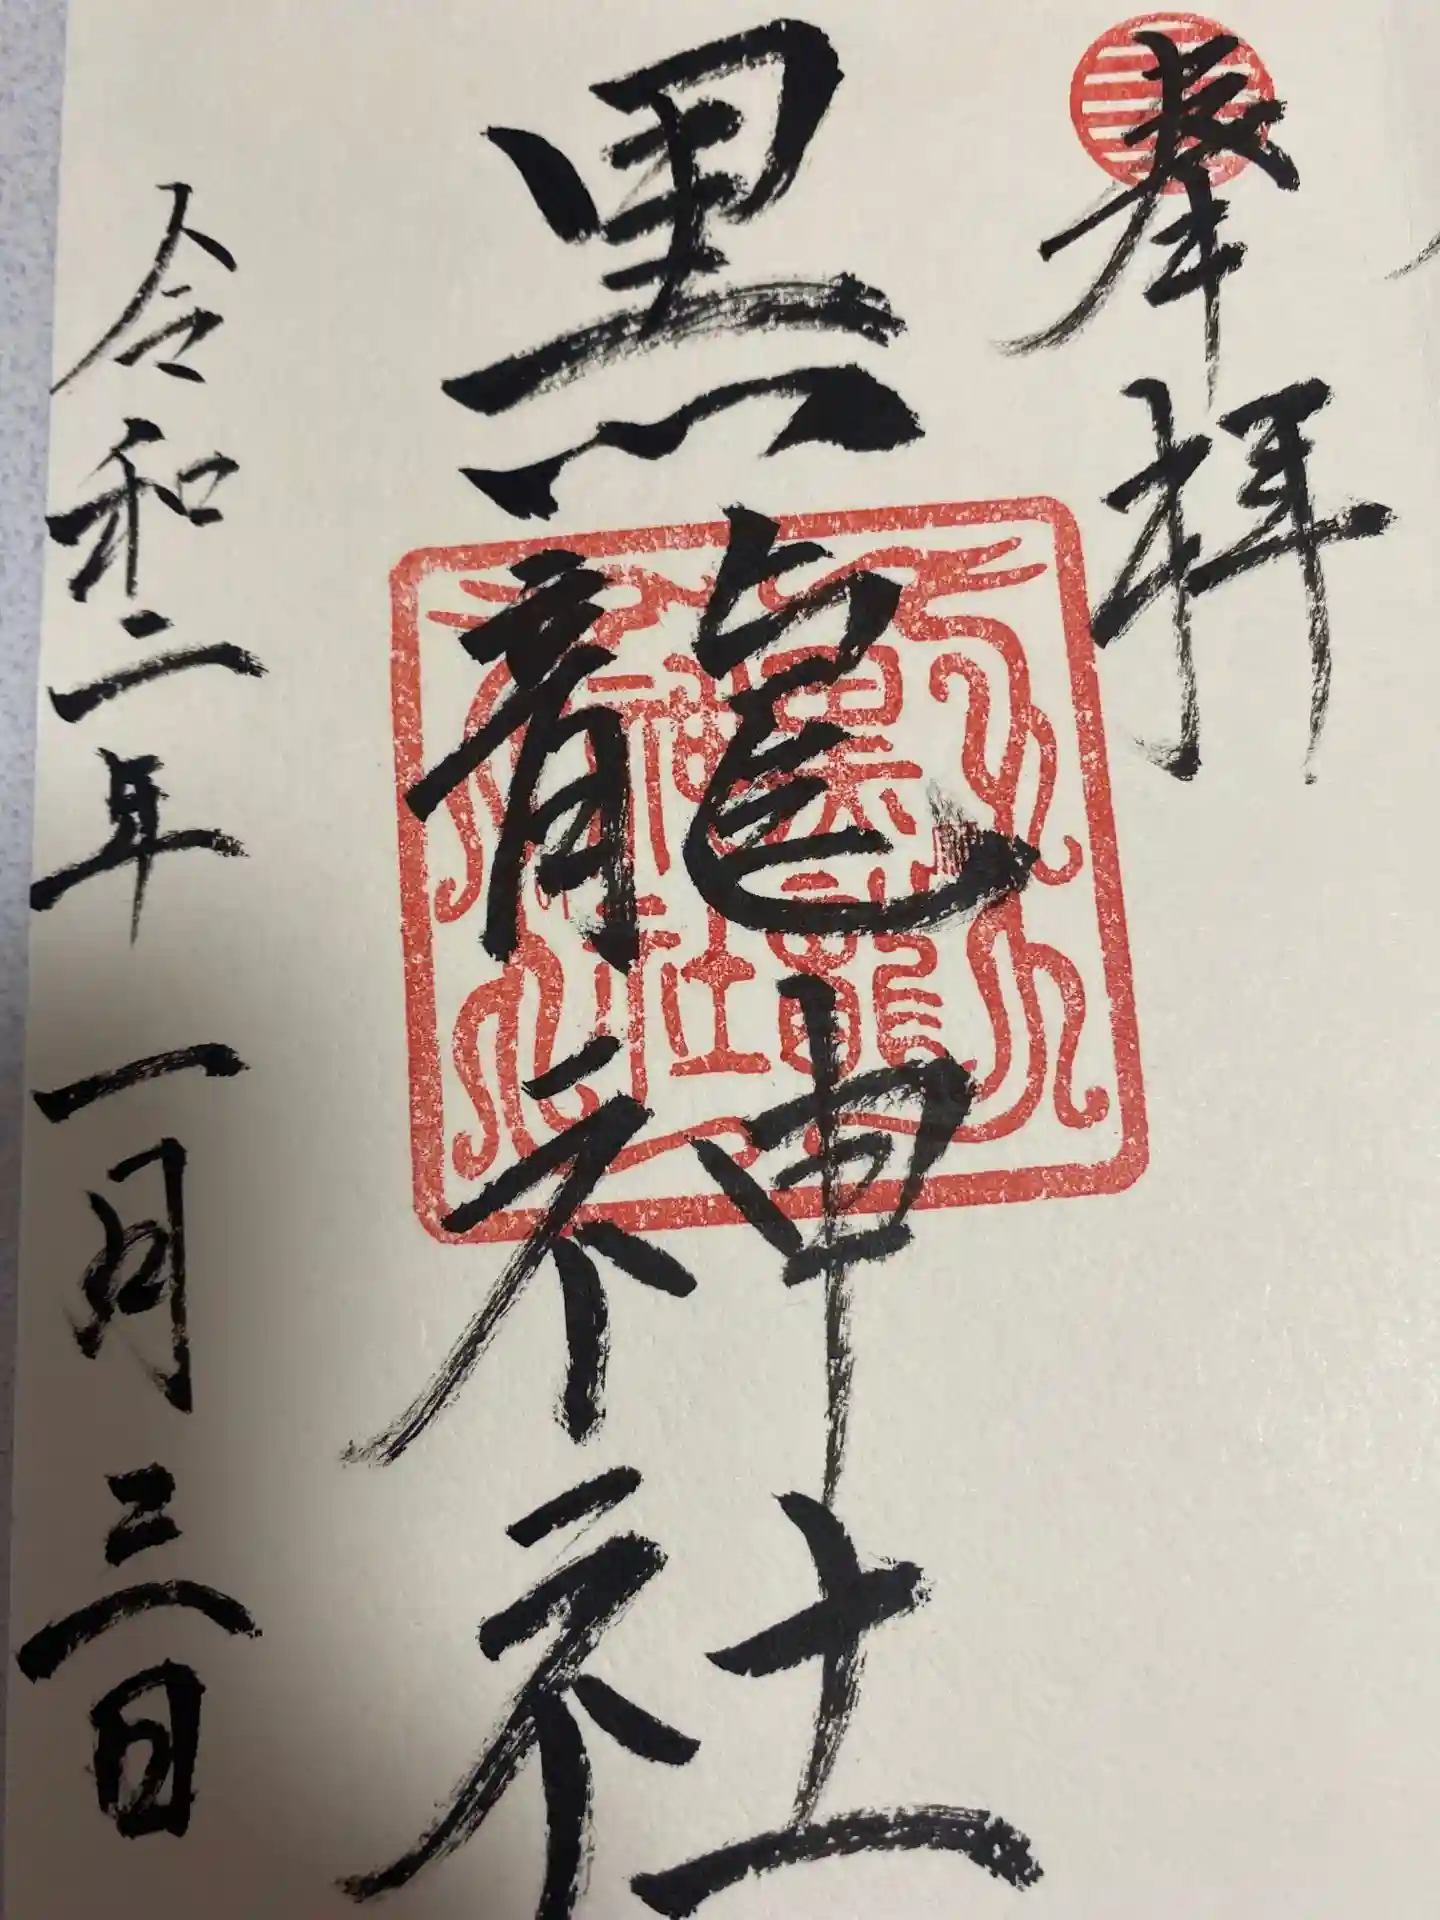 奉拝
黒龍神社
黒龍神社
令和二年一月三日